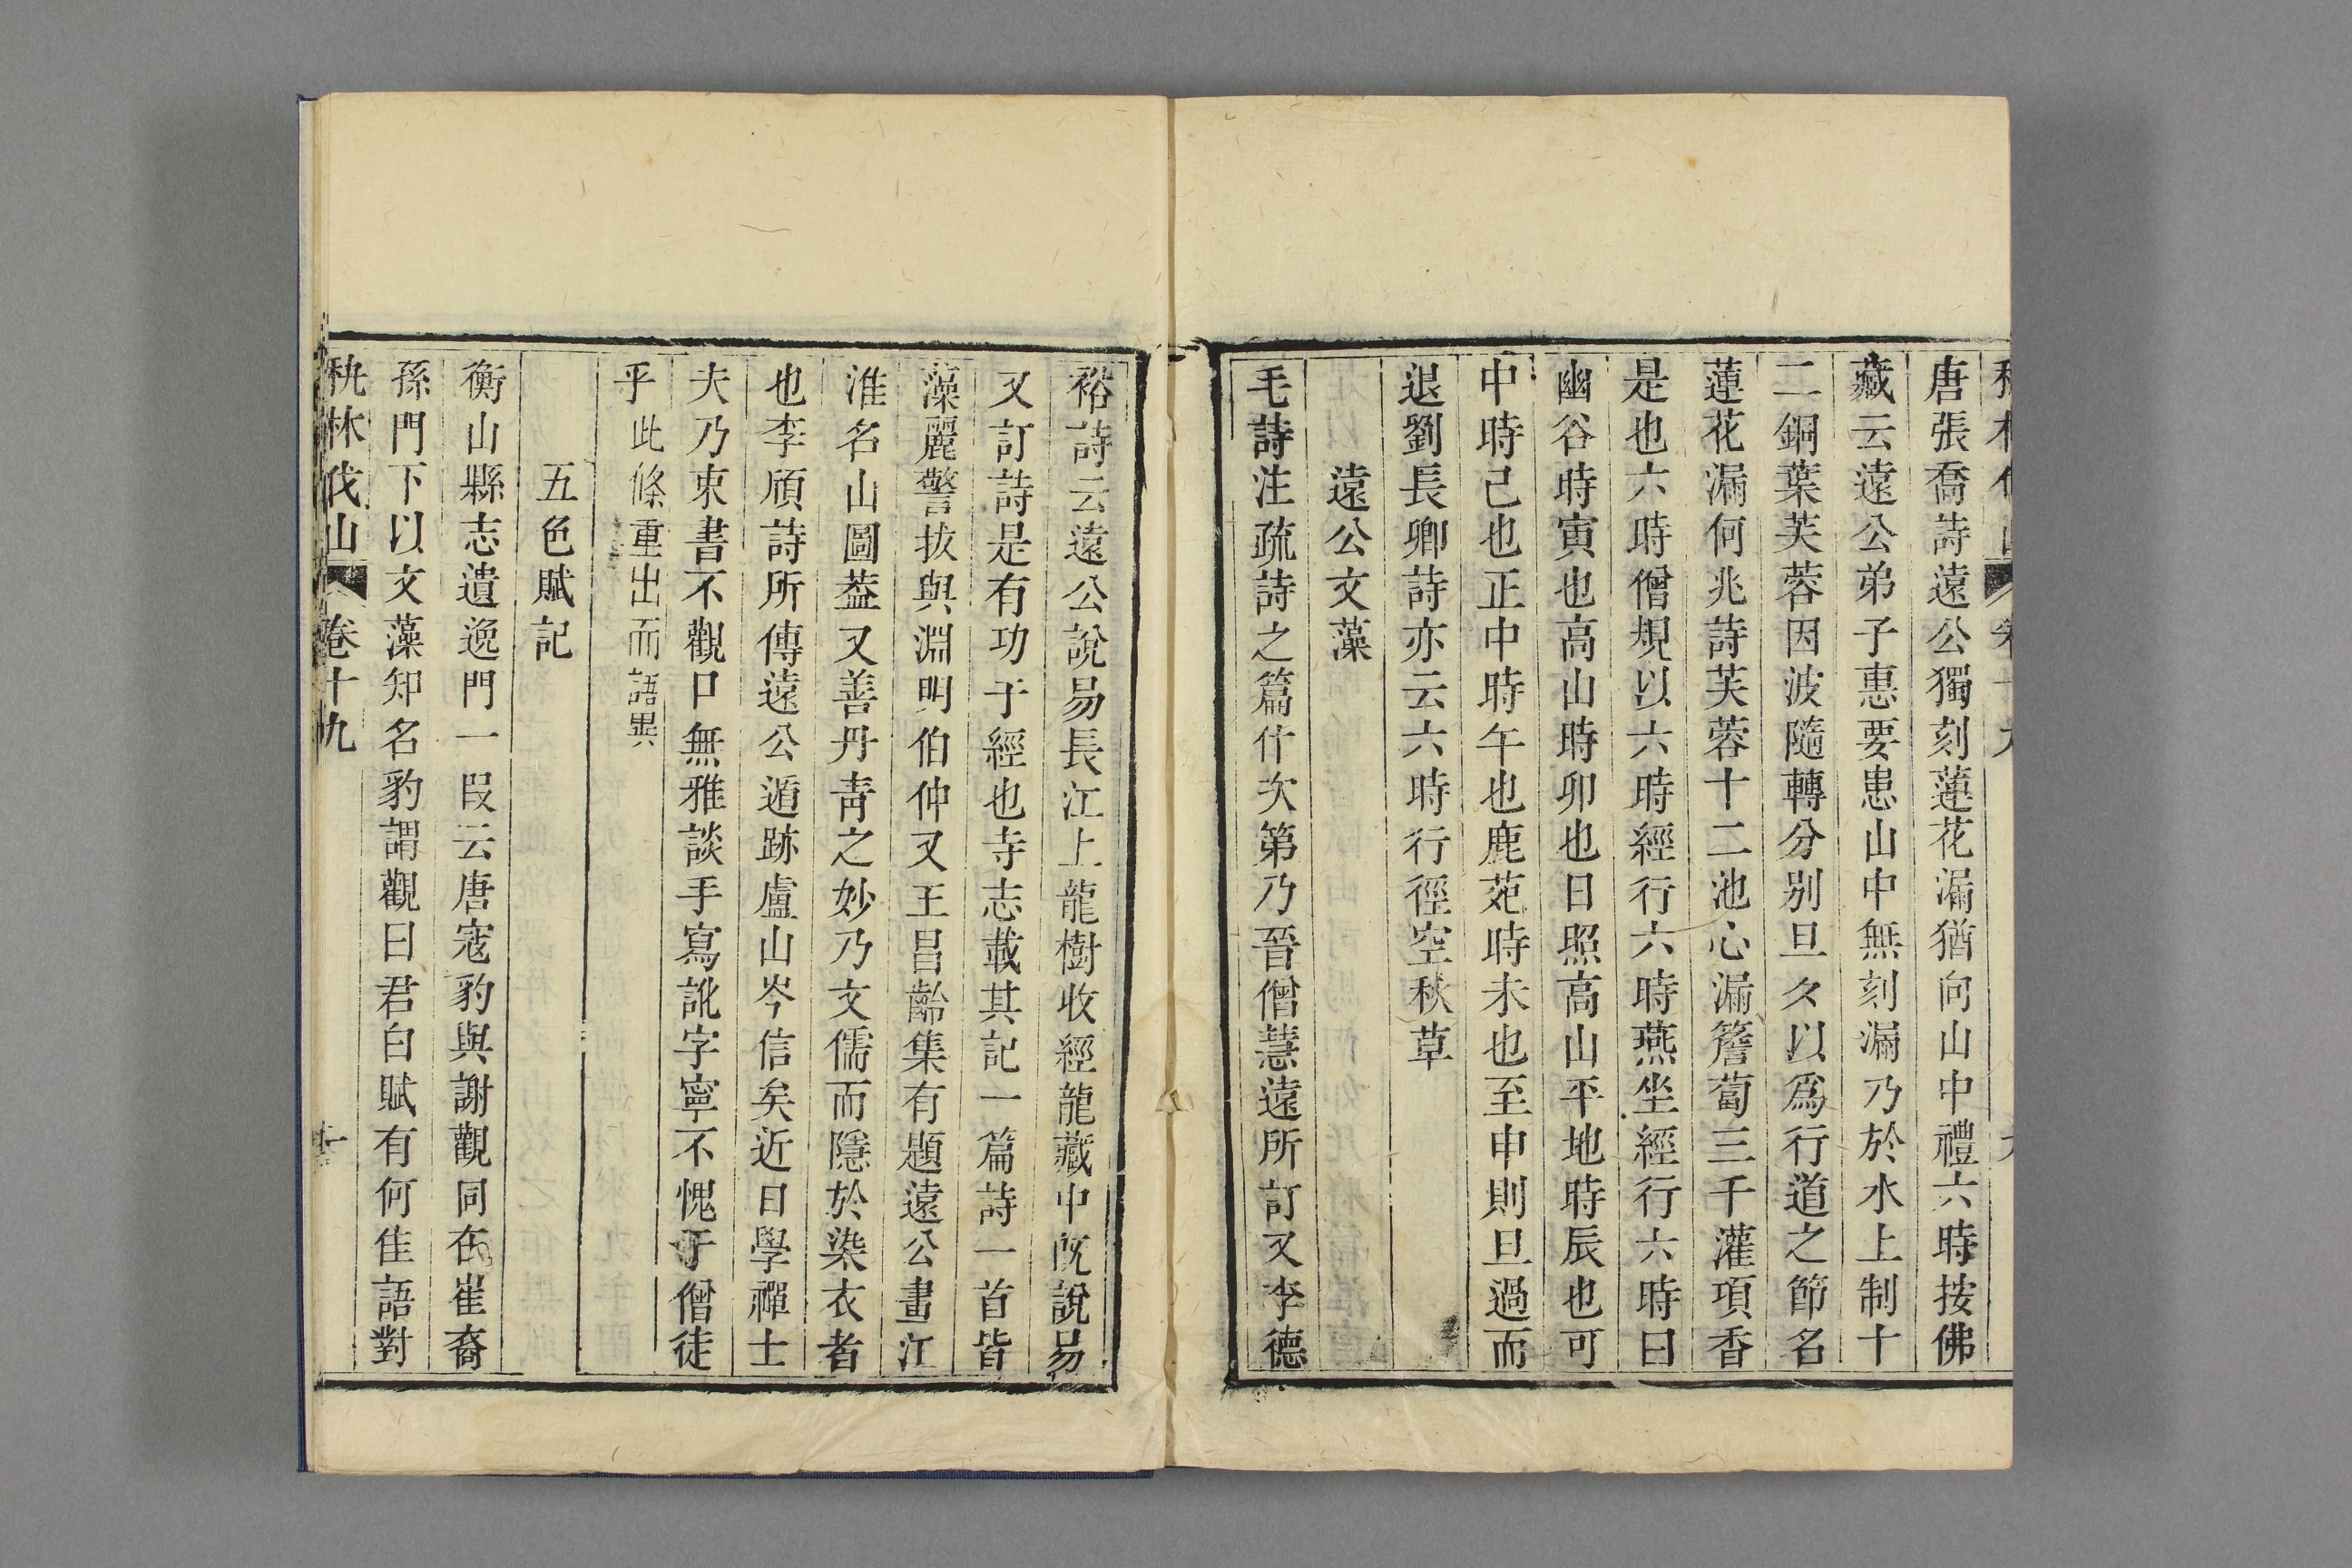 唐張喬詩遠公獨刻蓮花漏猶向山中禮六時按佛
藏云遠公弟子惠要患山中無刻漏乃於水上制十
二銅葉芙蓉因波隨轉分别旦夂以爲行道之節名
蓮花漏何兆詩芙蓉十二池心漏簷蔔三千灌項香
是也六時僧規以六時經行六時燕坐經行六時曰
幽谷時寅也高山時卯也日照高山平地時辰也可
中時己也正中時午也鹿苑時未也至申則旦過而
退劉長卿詩亦云六時行徑空秋草
遠公文藻
毛詩注疏詩之篇什次第乃晉僧慧遠所訂又李德
裕詩云遠公說易長江上龍樹收經龍藏中旣說易
又訂詩是有功于經也寺志載其記一篇詩一首皆
藻麗警拔與淵明伯仲又王昌齡集有題遠公畫江
淮名山圖葢又善丹靑之妙乃文儒而隱於染衣者
也李頎詩所傳遠公遁跡盧山岑信矣近日學禪士
夫乃束書不觀口無雅談手寫訛字寧不愧于僧徒
乎此條重出而語異
五色賦記
衡山縣志遺逸門一叚云唐寇豹與謝觀同在崔裔
孫門下以文藻知名豹謂觀曰君白賦有何佳語對
秇林伐山 卷十九 十